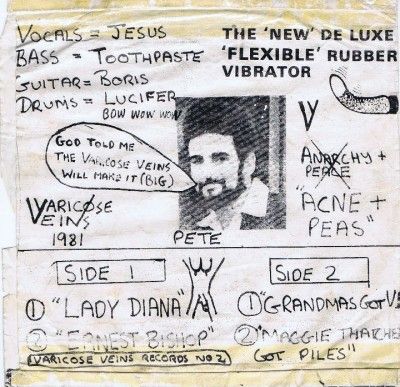 VOCALS = JESUS
BASS = TOOTHPASTE
GUITAR = BORIS
DRUMS = LUCIFER
BOW WOW WOW
THE 'NEW' DE LUXE
'FLEXIBLE' RUBBER
VIBRATOR
GOD TOLD ME
THE VARICOSE VEINS
WILL MAKE IT (BIG)
V
ANARCHY +
PEACE
"ACNE +
PEAS"
VARICOSE
VEINS
1981
PETE
SIDE 1
① "LADY DIANA"
② "ERNEST BISHOP"
VARICOSE VEINS RECORDS NO 2
SIDE 2
① "GRANDMAS GOT V
② "MAGGIE THATCHE
GOT PILES"